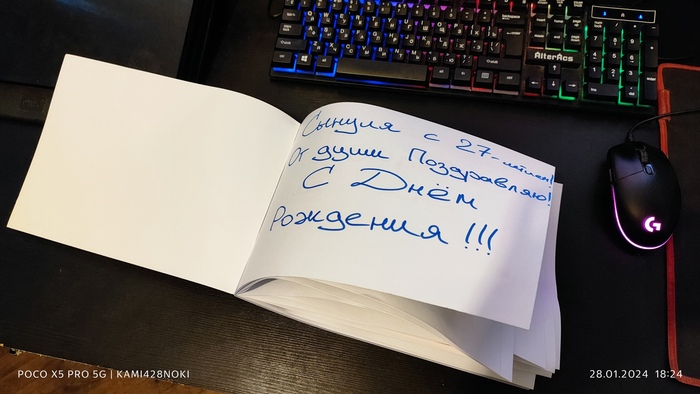 Сынуля с 27-летием!
От души Поздравляю!
С Днём
Рождения !!!
AlterAcs
G
POCO X5 PRO 5G | KAMI428NOKI
28.01.2024 18:24